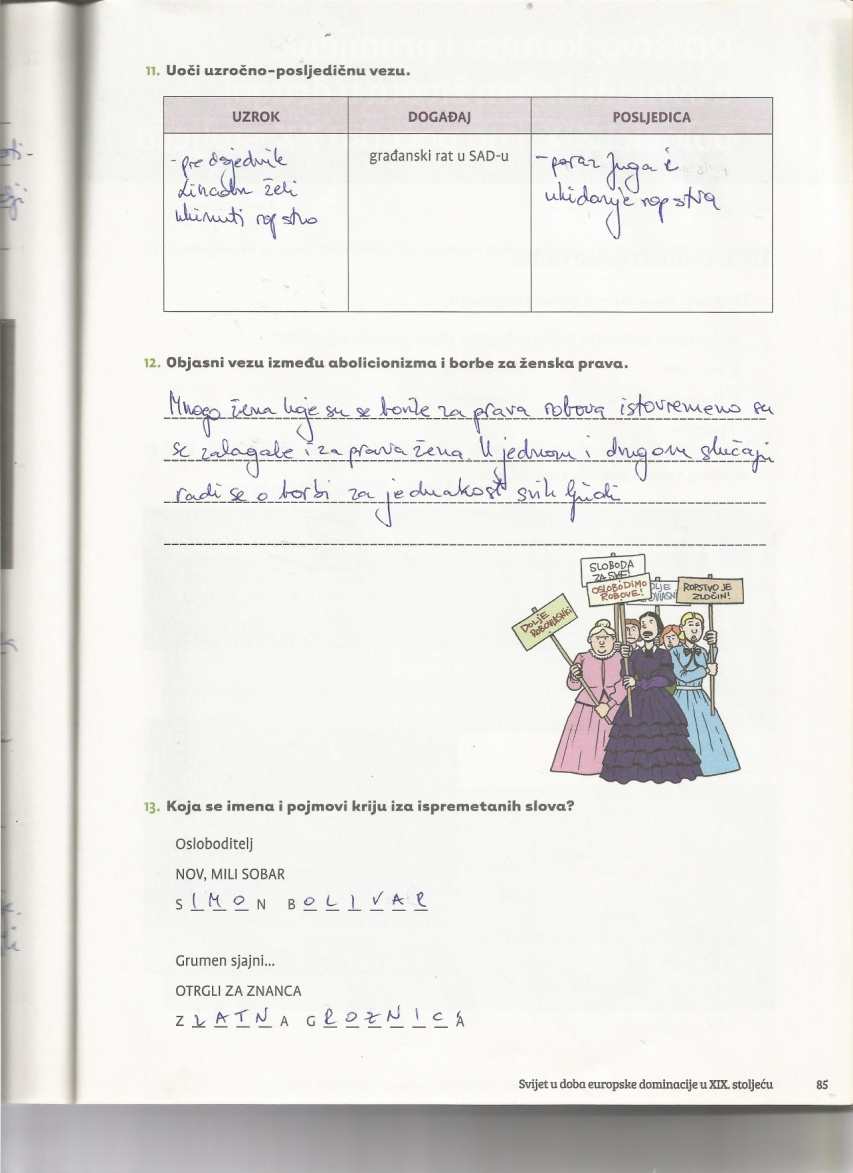 11. Uoči uzročno-posljedičnu vezu.
UZROK DOGAĐAJ POSLJEDICA
- predsjednik građanski rat u SAD-u - poraz Juga i
Lincoln želi ukidanje ropstva
ukinuti ropstvo
12. Objasni vezu između abolicionizma i borbe za ženska prava.
Mnogo žena koje su se borile za prava robova istovremeno su
se zalagale i za prava žena. U jednom i drugom slučaju
radi se o borbi za jednakost svih ljudi
SLOBODA
ZA SVE!
OSLOBODIMO
ROBOVE!
ROPSTVO JE
ZLOČIN!
DOLJE
ROBOVLASNIKI
13. Koja se imena i pojmovi kriju iza ispremetanih slova?
Osloboditelj
NOV, MILI SOBAR
S I M O N B O L I V A R
Grumen sjajni...
OTRGLI ZA ZNANCA
Z L A T N A G R O Z N I C A
Svijet u doba europske dominacije u XIX. stoljeću 85